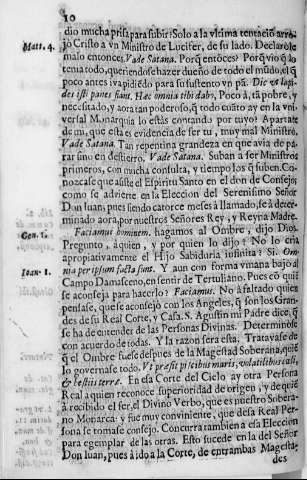 10
dio mucha prisa para subir? Solo a la vltima tentació arro-
Matt. 4. jò Cristo a vn Ministro de Lucifer, de su lado. Declaròle
malo entonces. Vade Satana. Porq̃ entonces? Porq̃ vio q̃ lo
tenia todo, queriendose hazer dueño de todo el mũdo, el q̃
poco antes iva pidiẽdo para su sustento vn pã. Dic vt lapi-
des isti panes fiant. Hæc omnia tibi dabo. Poco à tã pobre, y
necesitado, y aora tan poderoso, q̃ todo cuãto ay en la vni-
versal Monarquia lo estàs contando por tuyo? Apartate
de mi, que esta es evidencia de ser tu, muy mal Ministro.
Vade Satana. Tan repentina grandeza en que avia de pa-
rar sino en destierro. Vade Satana. Suban a ser Ministros
primeros, con mucha consulta, y tiempo los q̃ suben. Co-
nozcase que asiste el Espiritu Santo en el don de Consejo,
como se advierte en la Eleccion del Serenisimo Señor
Don Iuan, pues siendo catorce meses à llamado, se à deter-
minado aora, por nuestros Señores Rey, y Reyna Madre.
Gen. 1. Faciamus hominem. hagamos al Ombre, dijo Dios.
Pregunto, à quien, y por quien lo dijo? No lo cria
apropiativamente el Hijo Sabiduria infinita? Si. Om-
Ioan. 1. nia per ipsum facta sunt. Y aun con forma vmana bajò al
Campo Damasceno, en sentir de Tertuliano. Pues cõ quiẽ
se aconseja para hacerlo? Faciamus. No à faltado quien
pensase, que se aconsejò con los Angeles, q̃ son los Gran-
des de su Real Corte, y Casa. S. Agustin mi Padre dice, q̃
se ha de entender de las Personas Divinas. Determinòse
con acuerdo de todas. Y la razon sera esta. Tratavase de
q̃ el Ombre fuese despues de la Magestad Soberana, quiẽ
lo governase todo. Vt præsit piscibus maris, volatilibus cæli,
& bestiis terræ. En esa Corte del Cielo ay otra Persona
Real a quien reconoce superioridad de origen, y de quiẽ
à recibido el ser, el Divino Verbo, que es nuestro Sobera-
no Monarca: y fue muy conviniente, que desa Real Per-
sona se tomase consejo. Concurra tambien a esa Eleccion
para egemplar de las otras. Esto sucede en la del Señor
Don Iuan, pues à ido a la Corte, de entrambas Magesta-
des